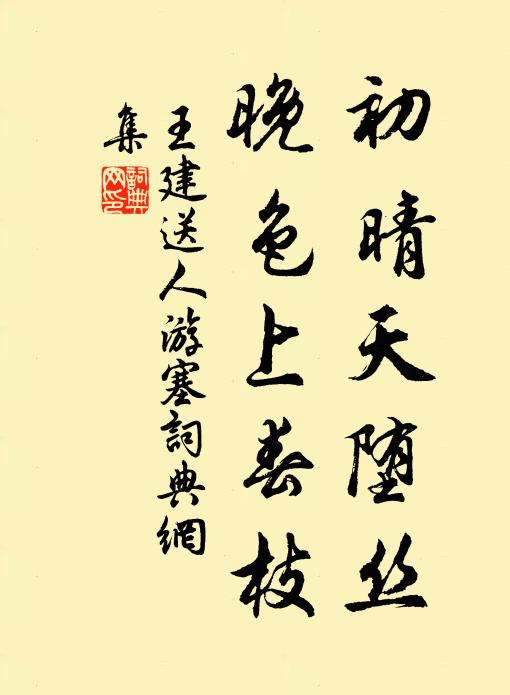 初晴天堕丝
晚色上春枝
王建送人游塞詞典網
集
詞典网印